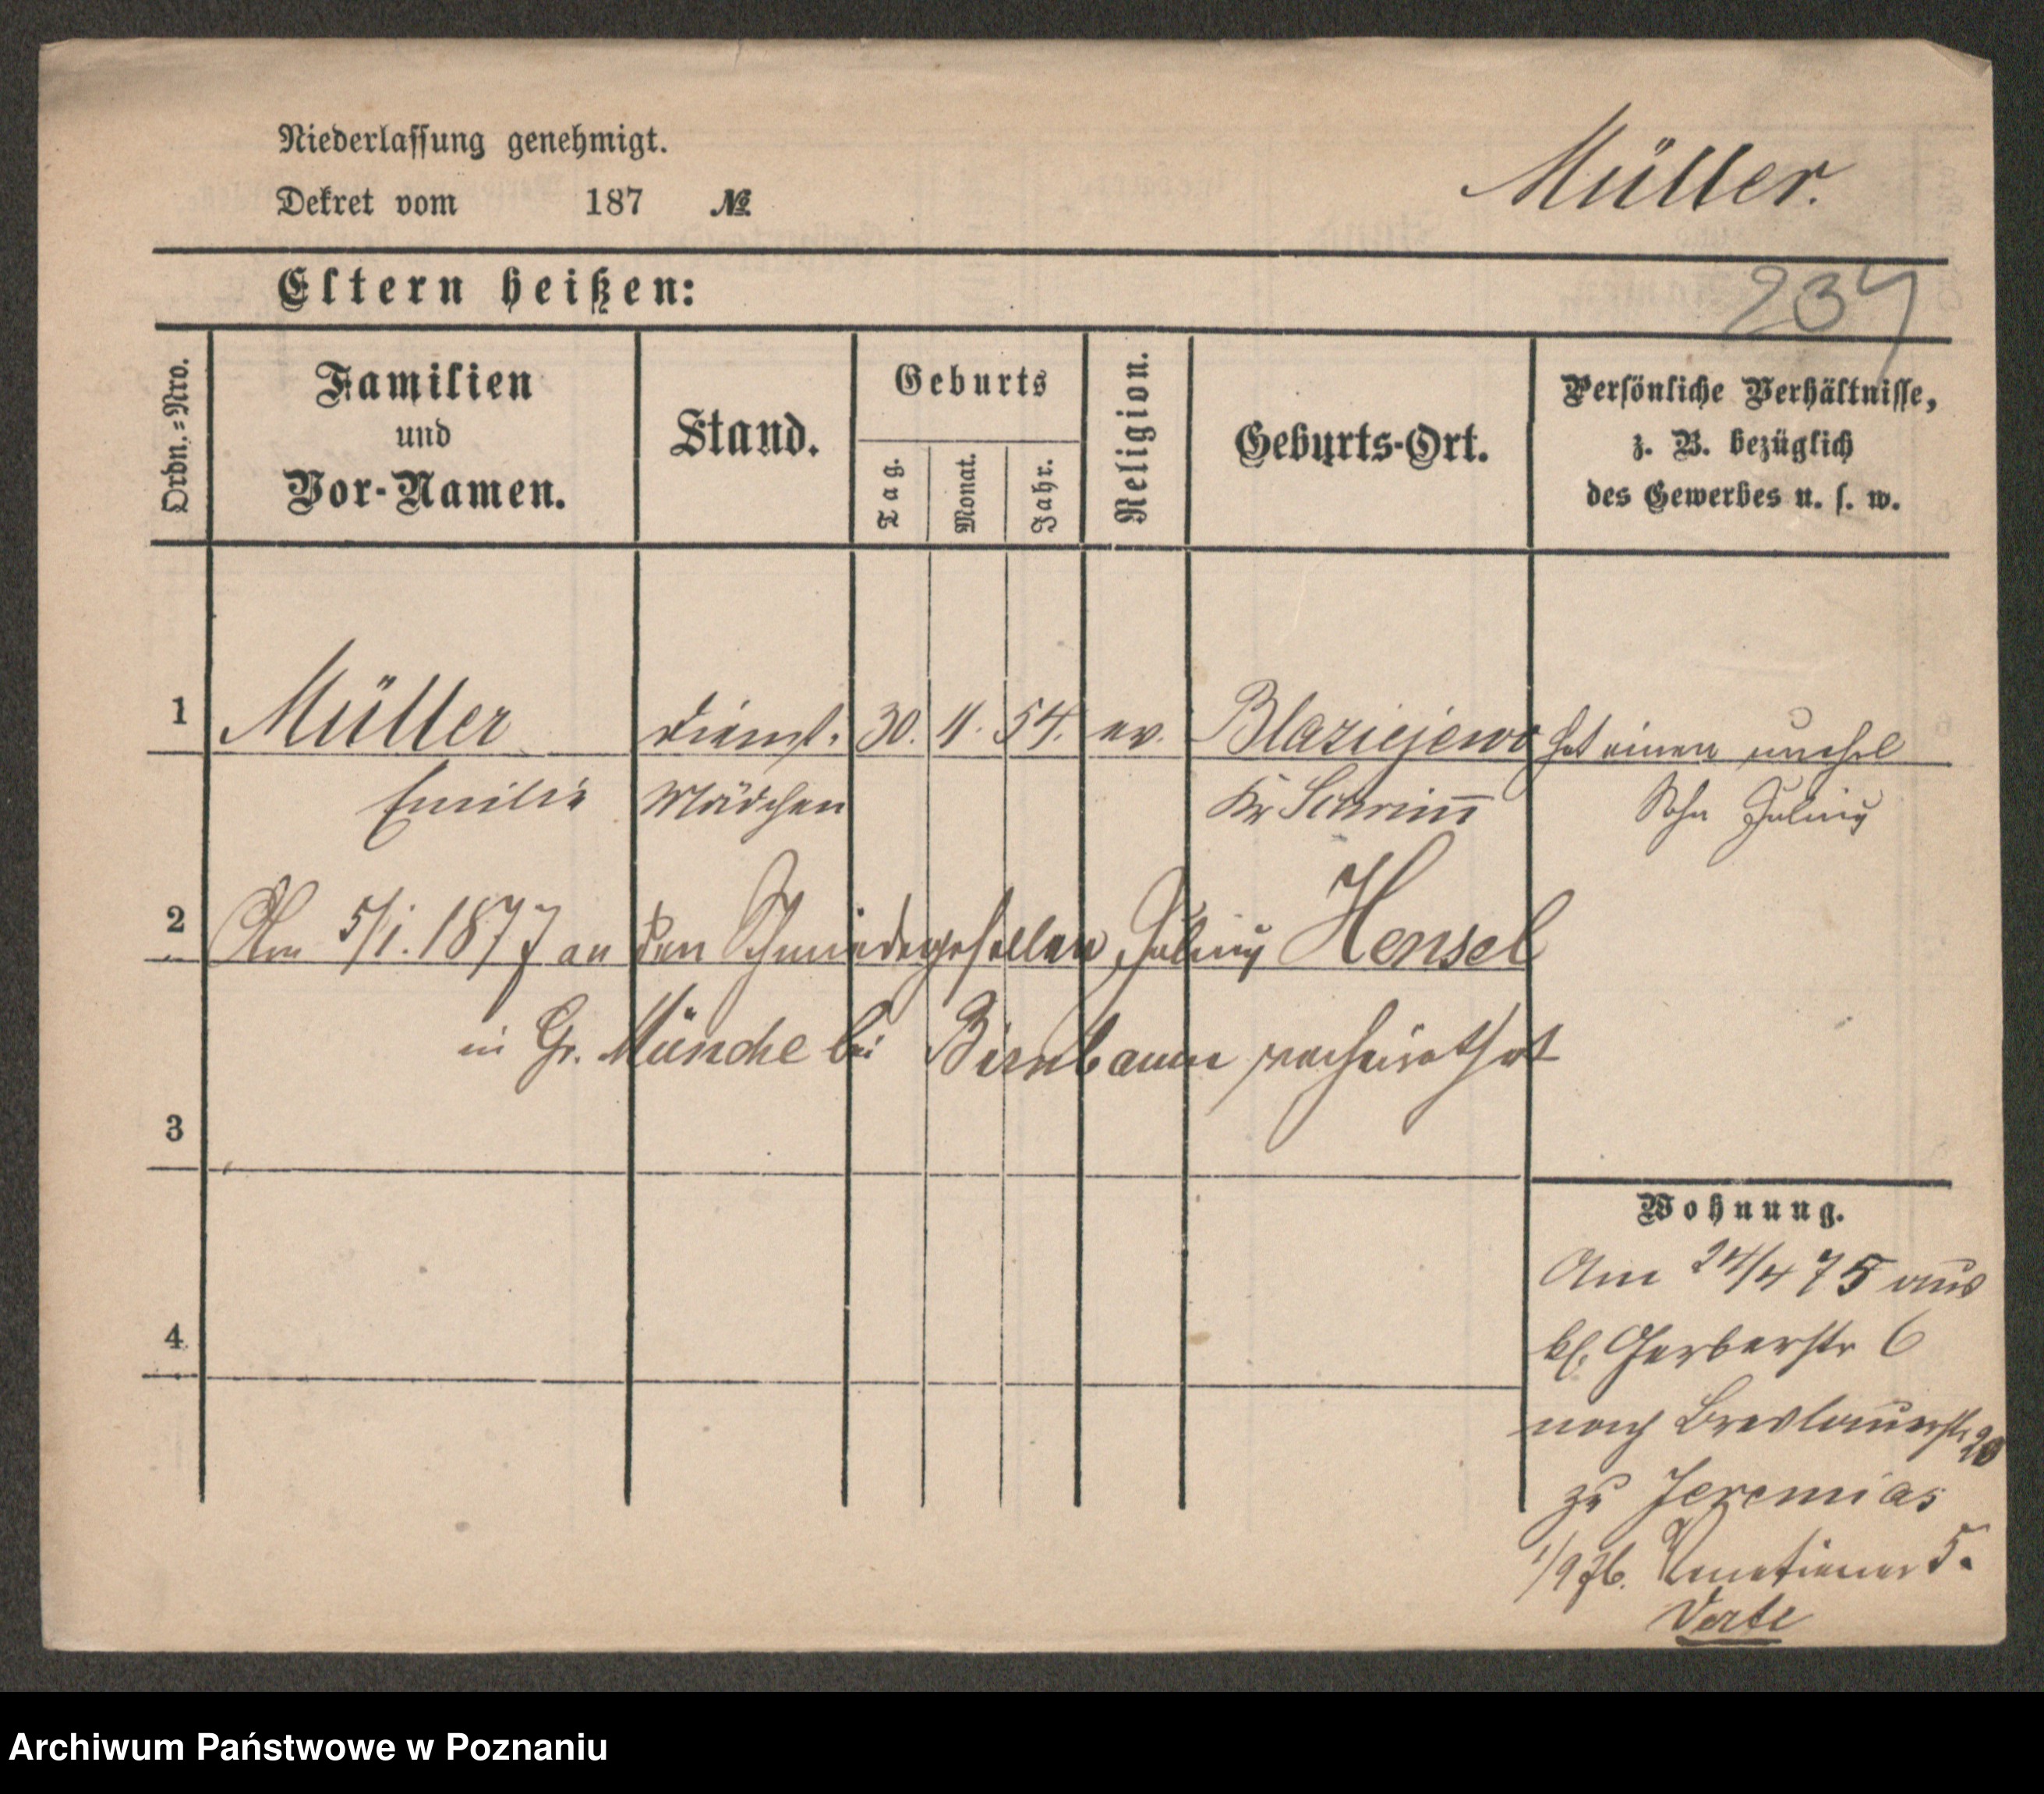 Niederlassung genehmigt.
Dekret vom 187 №
Müller.
Eltern heißen:
234
Ordn.-Nro.
Familien und Vor-Namen.
Stand.
Geburts
Tag. Monat. Jahr.
Religion.
Geburts-Ort.
Persönliche Verhältnisse,
z. B. bezüglich
des Gewerbes u. s. w.
1 Müller Dienst. 30. 11. 54. ev. Blaziejewo hat einen unehel
Emilie Mädchen Kr Schrim̄ Sohn Julius
2 Am 5/1. 1877 an den Schmiedegesellen Julius Hensel
in Gr. Münche bei Birnbaum verheirathet
3
4
Wohnung.
Am 24/4 75 aus
kl. Gerberstr 6
nach Breslauerstr 20
zu Jeremias
1/9 76. Venetianer 5.
Verte
Archiwum Państwowe w Poznaniu